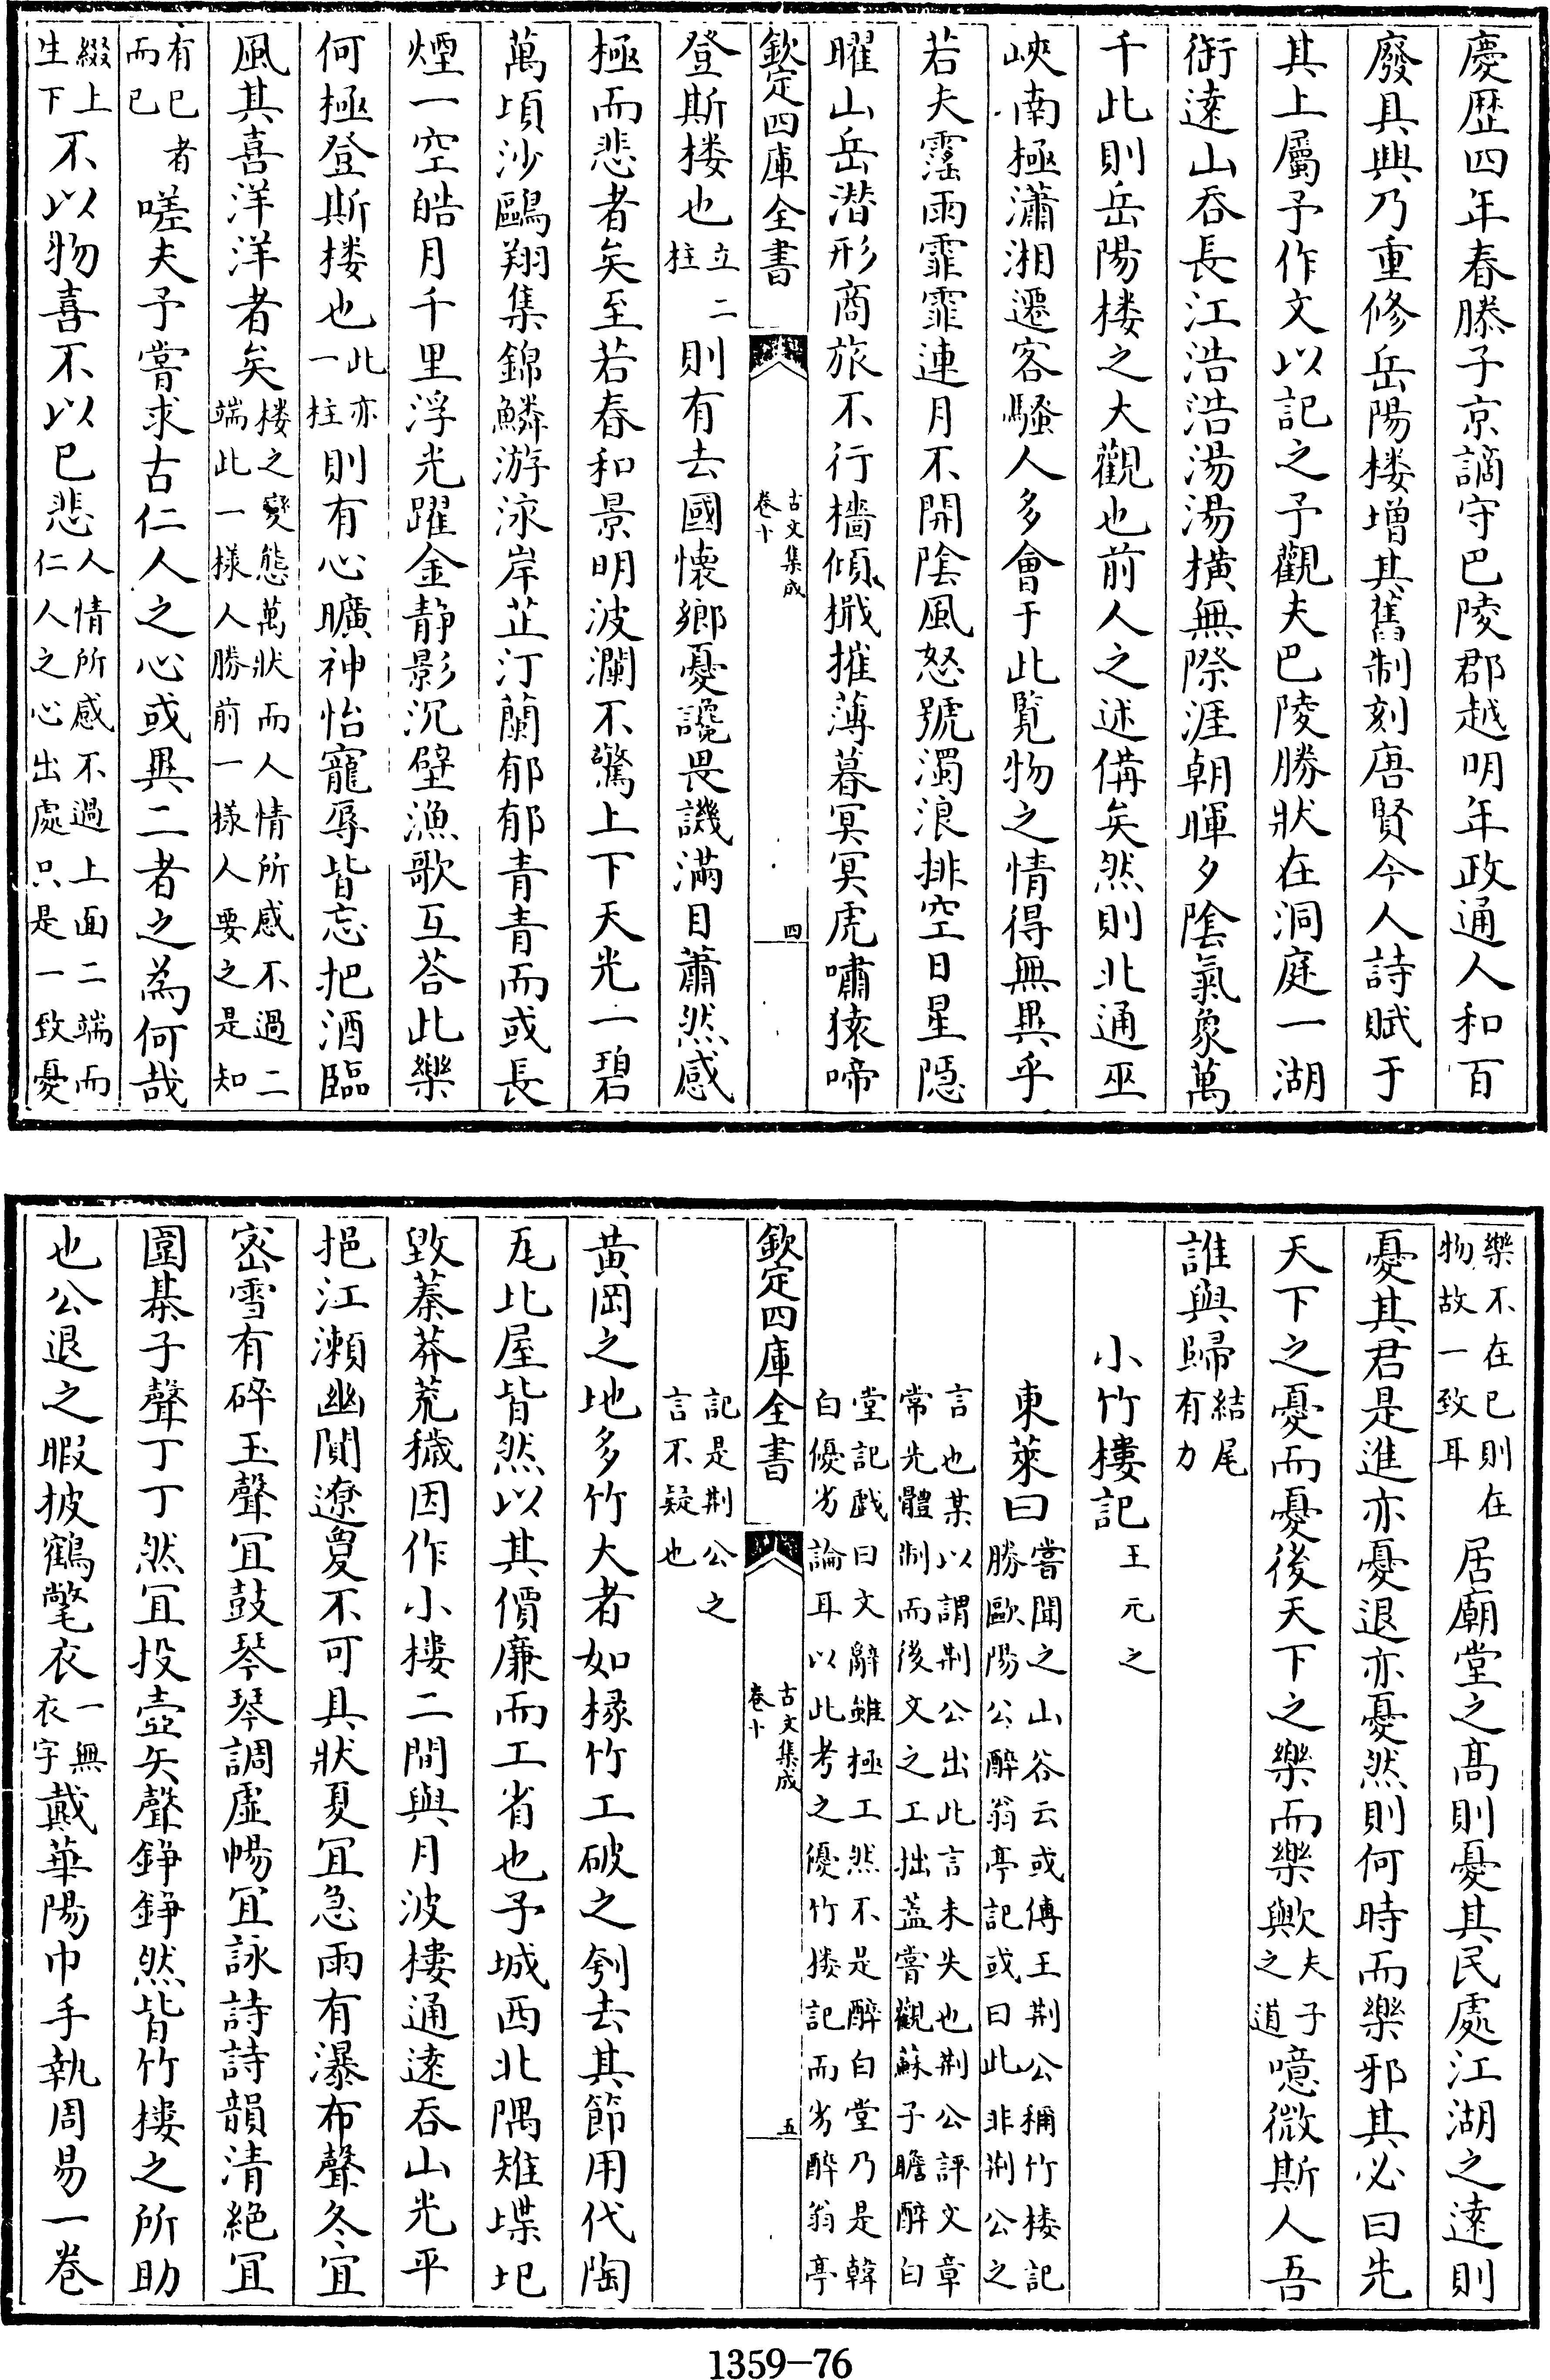 慶歴四年春滕子京謫守巴陵郡越明年政通人和百
廢具興乃重修岳陽楼增其舊制刻唐賢今人詩賦于
其上屬予作文以記之予觀夫巴陵勝狀在洞庭一湖
銜遠山吞長江浩浩湯湯橫無際涯朝暉夕陰氣象萬
千此則岳陽楼之大觀也前人之述備矣然則北通巫
峽南極瀟湘遷客騷人多會于此覧物之情得無異乎
若夫霪雨霏霏連月不開陰風怒號濁浪排空日星隱
曜山岳潛形商旅不行檣傾檝摧薄暮冥冥虎嘯猿啼
欽定四庫全書
古文集成
卷十
四
登斯楼也立二柱則有去國懷鄉憂讒畏譏滿目蕭然感
極而悲者矣至若春和景明波瀾不驚上下天光一碧
萬頃沙鷗翔集錦鱗游泳岸芷汀蘭郁郁青青而或長
煙一空皓月千里浮光躍金静影沉璧漁歌互荅此樂
何極登斯楼也此亦一柱則有心曠神怡寵辱皆忘把酒臨
風其喜洋洋者矣楼之變態萬狀而人情所感不過二端此一様人勝前一様人要之是知
有已者而已嗟夫予嘗求古仁人之心或異二者之為何哉
綴上生下不以物喜不以已悲人情所感不過上面二端而仁人之心出處只是一致憂
樂不在已則在物故一致耳居廟堂之髙則憂其民處江湖之遠則
憂其君是進亦憂退亦憂然則何時而樂邪其必曰先
天下之憂而憂後天下之樂而樂歟夫子之道噫微斯人吾
誰與歸結尾有力
小竹樓記王元之
東萊曰嘗聞之山谷云或傳王荆公稱竹楼記勝歐陽公醉翁亭記或曰此非荆公之
言也某以謂荆公出此言未失也荆公評文章常先體制而後文之工拙蓋嘗觀蘇子瞻醉白
堂記戲曰文辭雖極工然不是醉白堂乃是韓白優劣論耳以此考之優竹楼記而劣醉翁亭
欽定四庫全書
古文集成
卷十
五
記是荆公之言不疑也
黄岡之地多竹大者如椽竹工破之刳去其節用代陶
瓦比屋皆然以其價廉而工省也予城西北隅雉堞圮
毀蓁莽荒穢因作小樓二間與月波樓通遠吞山光平
挹江瀬幽闃遼夐不可具狀夏宜急雨有瀑布聲冬宜
密雪有碎玉聲宜鼓琴琴調虚暢宜詠詩詩韻清絶宜
圍棊子聲丁丁然宜投壺矢聲錚錚然皆竹樓之所助
也公退之暇披鶴氅衣一無衣字戴華陽巾手執周易一卷
1359-76